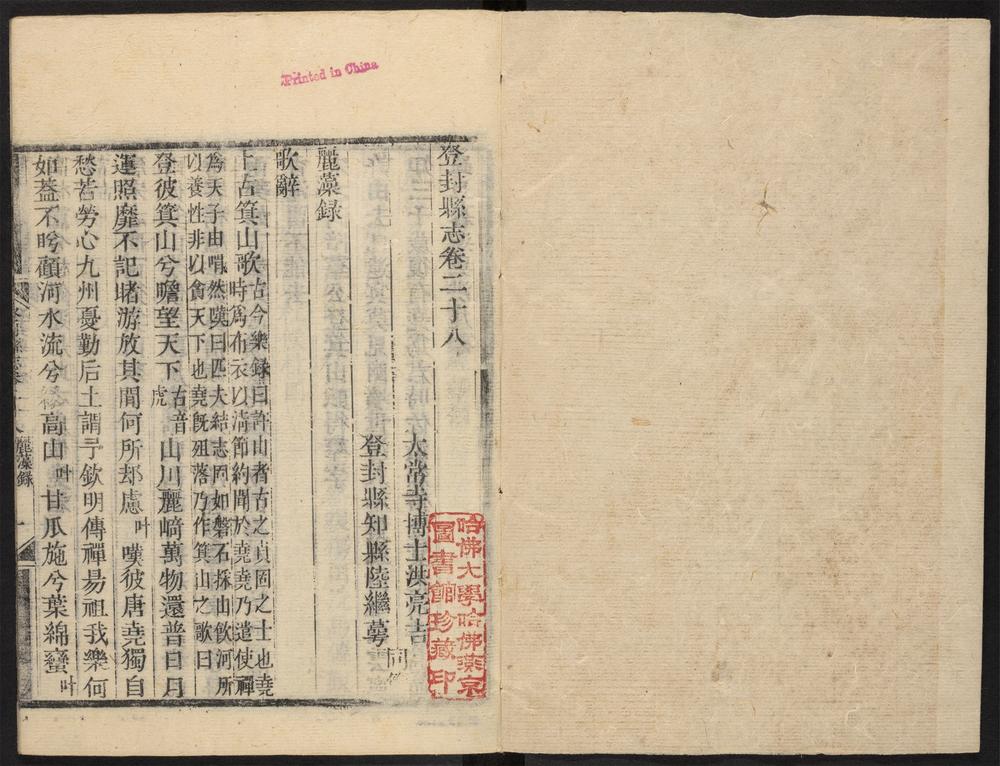 Printed in China
登封縣志卷二十八
太常寺博士洪亮吉
登封縣知縣陸繼萼 同
哈佛大學哈佛燕京
圖書館珍藏印
麗藻錄
歌辭
上古箕山歌
古今樂錄曰許由者古之貞固之士也堯
時爲布衣以清節約聞於堯堯乃遣使禪
爲天子由喟然嘆曰匹夫結志固如磐石採山飲河所
以養性非以貪天下也堯既殂落乃作箕山之歌曰
登彼箕山兮瞻望天下
古音
虎
山川麗崎萬物還普日月
運照靡不記睹游放其間何所却慮
叶
嘆彼唐堯獨自
愁苦勞心九州憂勤后土謂予欽明傳禪易祖我樂何
如蓋不盻顧河水流兮緣高山
叶
甘瓜施兮葉綿蠻
叶
麗藻錄
一